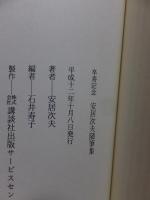 卒寿記念 安居次夫随筆集
平成十二年十月八日発行
著者──安居次夫
編者──石井寿子
製作──株式会社講談社出版サービスセン